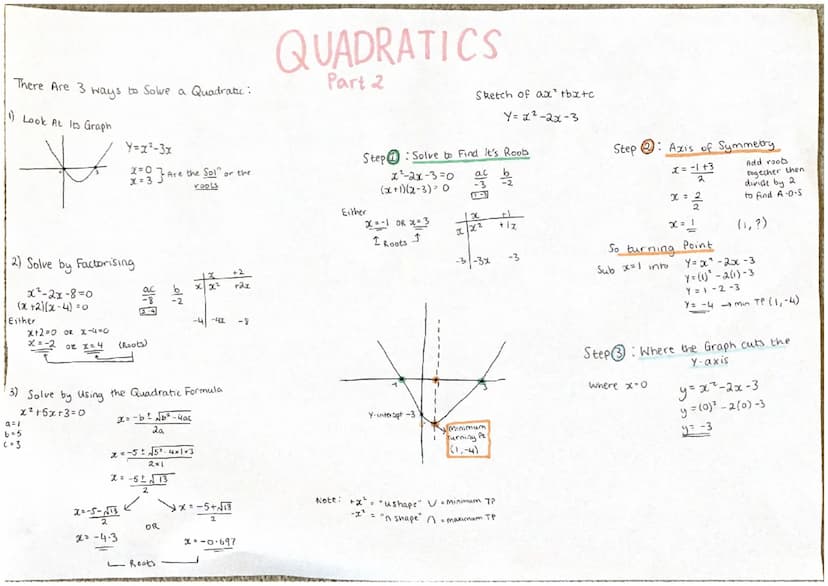 QUADRATICS
Part 2
There Are 3 ways to Solve a Quadratic:
1) Look At Its Graph
Y=x²-3x
x=0
x=3
} Are the Solⁿ or the
roots
3
2) Solve by Factorising
x²-2x-8=0
(x+2)(x-4)=0
Either
x+2=0 or x-4=0
x=-2 or x=4 (Roots)
ac b
-8 -2
2 -4
x +2
x x² +2x
-4 -4x -8
3) Solve by Using the Quadratic Formula
x²+5x+3=0
a=1
b=5
c=3
x=-b±√b²-4ac
2a
x=-5±√5²-4×1×3
2×1
x=-5±√13
2
x=-5-√13
2
OR
x=-5+√13
2
x=-4.3
x=-0.697
Roots
Sketch of ax²+bx+c
Y=x²-2x-3
Step 1: Solve to Find it's Roots
x²-2x-3=0
(x+1)(x-3)=0
ac b
-3 -2
1 -3
Either
x=-1 OR x=3
Roots
x +1
x x² +1x
-3 -3x -3
-1 3
Y-intercept -3
Minimum
turning Pt
(1,-4)
Note: +x² = "u shape" ∪ = Minimum TP
-x² = "n shape" ∩ = maximum TP
Step 2: Axis of Symmetry
x=-1+3
2
x=2
2
x=1
add roots
together then
divide by 2
to find A-O-S
(1,?)
So turning Point
Sub x=1 into
Y=x²-2x-3
Y=(1)²-2(1)-3
Y=1-2-3
Y=-4 → min TP (1,-4)
Step 3: Where the Graph cuts the
Y-axis
Where x=0
y=x²-2x-3
y=(0)²-2(0)-3
y=-3